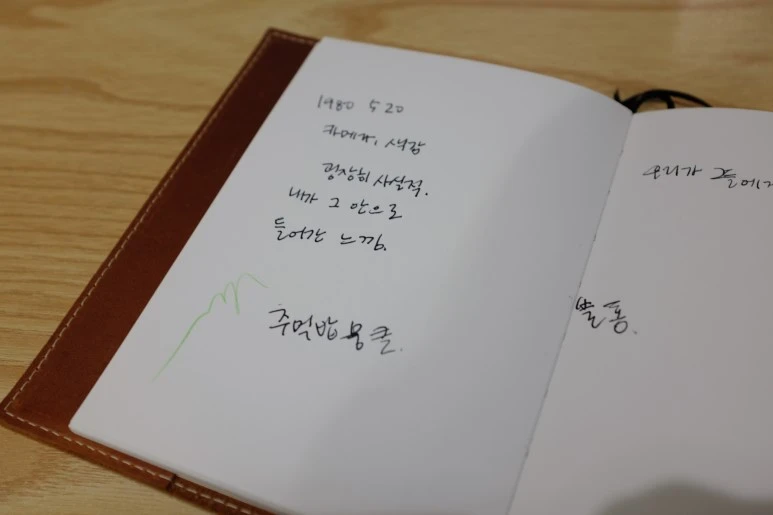 1980 5 20
카메라, 색감
굉장히 사실적.
내가 그 안으로
들어간 느낌.
주먹밥 뭉클.
우리가 그들에게